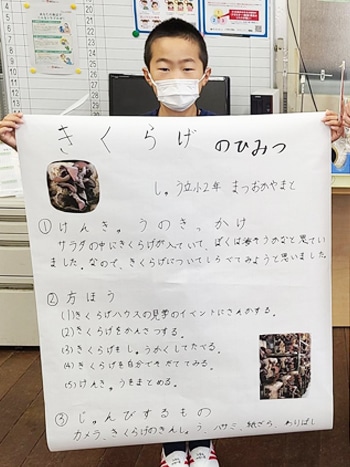 きくらげ のひみつ
し。う立小2年 まつおかやまと
① けんき。うのき、かけ
サラダの中にきくらげが入ていて、ぼくは海そうかなと思てい
ました。なので、きくらげについてしらべてみようと思いました。
② 方ほう
(1)きくらげハウスの見学のイベントにさんかする。
(2)きくらげをかんさつする。
(3)きくらげをし。うかくしてたべる。
(4)きくらげを自分でそだててみる。
(5)けんき。うをまとめる。
③ じ。んびするもの
カメラ、きくらげのきんし。う、ハサミ、紙ざら、わりばし